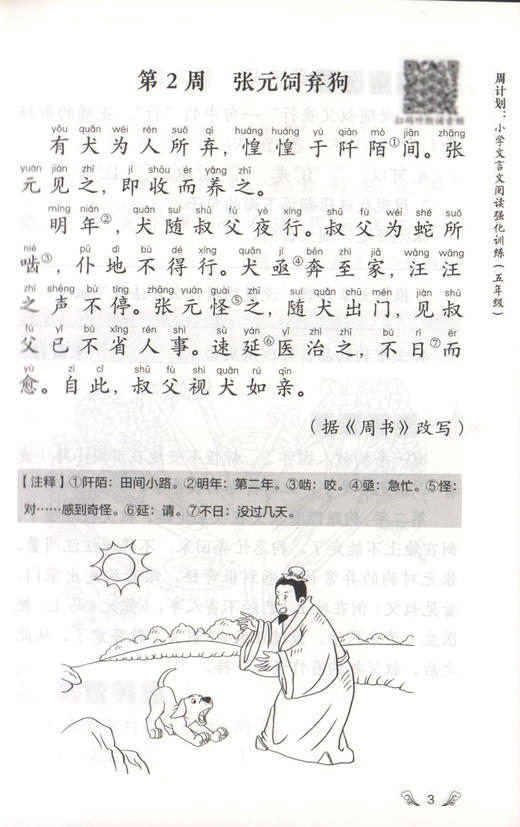 第2周 张元饲弃狗
扫码听朗诵音频
周计划：小学文言文阅读强化训练（五年级）
yǒu quǎn wéi rén suǒ qì huáng huáng yú qiān mò jiān zhāng
有犬为人所弃，惶惶于阡陌①间。张
yuán jiàn zhī jí shōu ér yǎng zhī
元见之，即收而养之。
míng nián quǎn suí shū fù yè xíng shū fù wéi shé suǒ
明年②，犬随叔父夜行。叔父为蛇所
niè pū dì bù dé xíng quǎn jí bēn zhì jiā wāng wāng
啮③，仆地不得行。犬亟④奔至家，汪汪
zhī shēng bù tíng zhāng yuán guài zhī suí quǎn chū mén jiàn shū
之声不停。张元怪⑤之，随犬出门，见叔
fù yǐ bù xǐng rén shì sù yán yī zhì zhī bú rì ér
父已不省人事。速延⑥医治之，不日⑦而
yù zì cǐ shū fù shì quǎn rú qīn
愈。自此，叔父视犬如亲。
（据《周书》改写）
【注释】①阡陌：田间小路。②明年：第二年。③啮：咬。④亟：急忙。⑤怪：
对……感到奇怪。⑥延：请。⑦不日：没过几天。
3